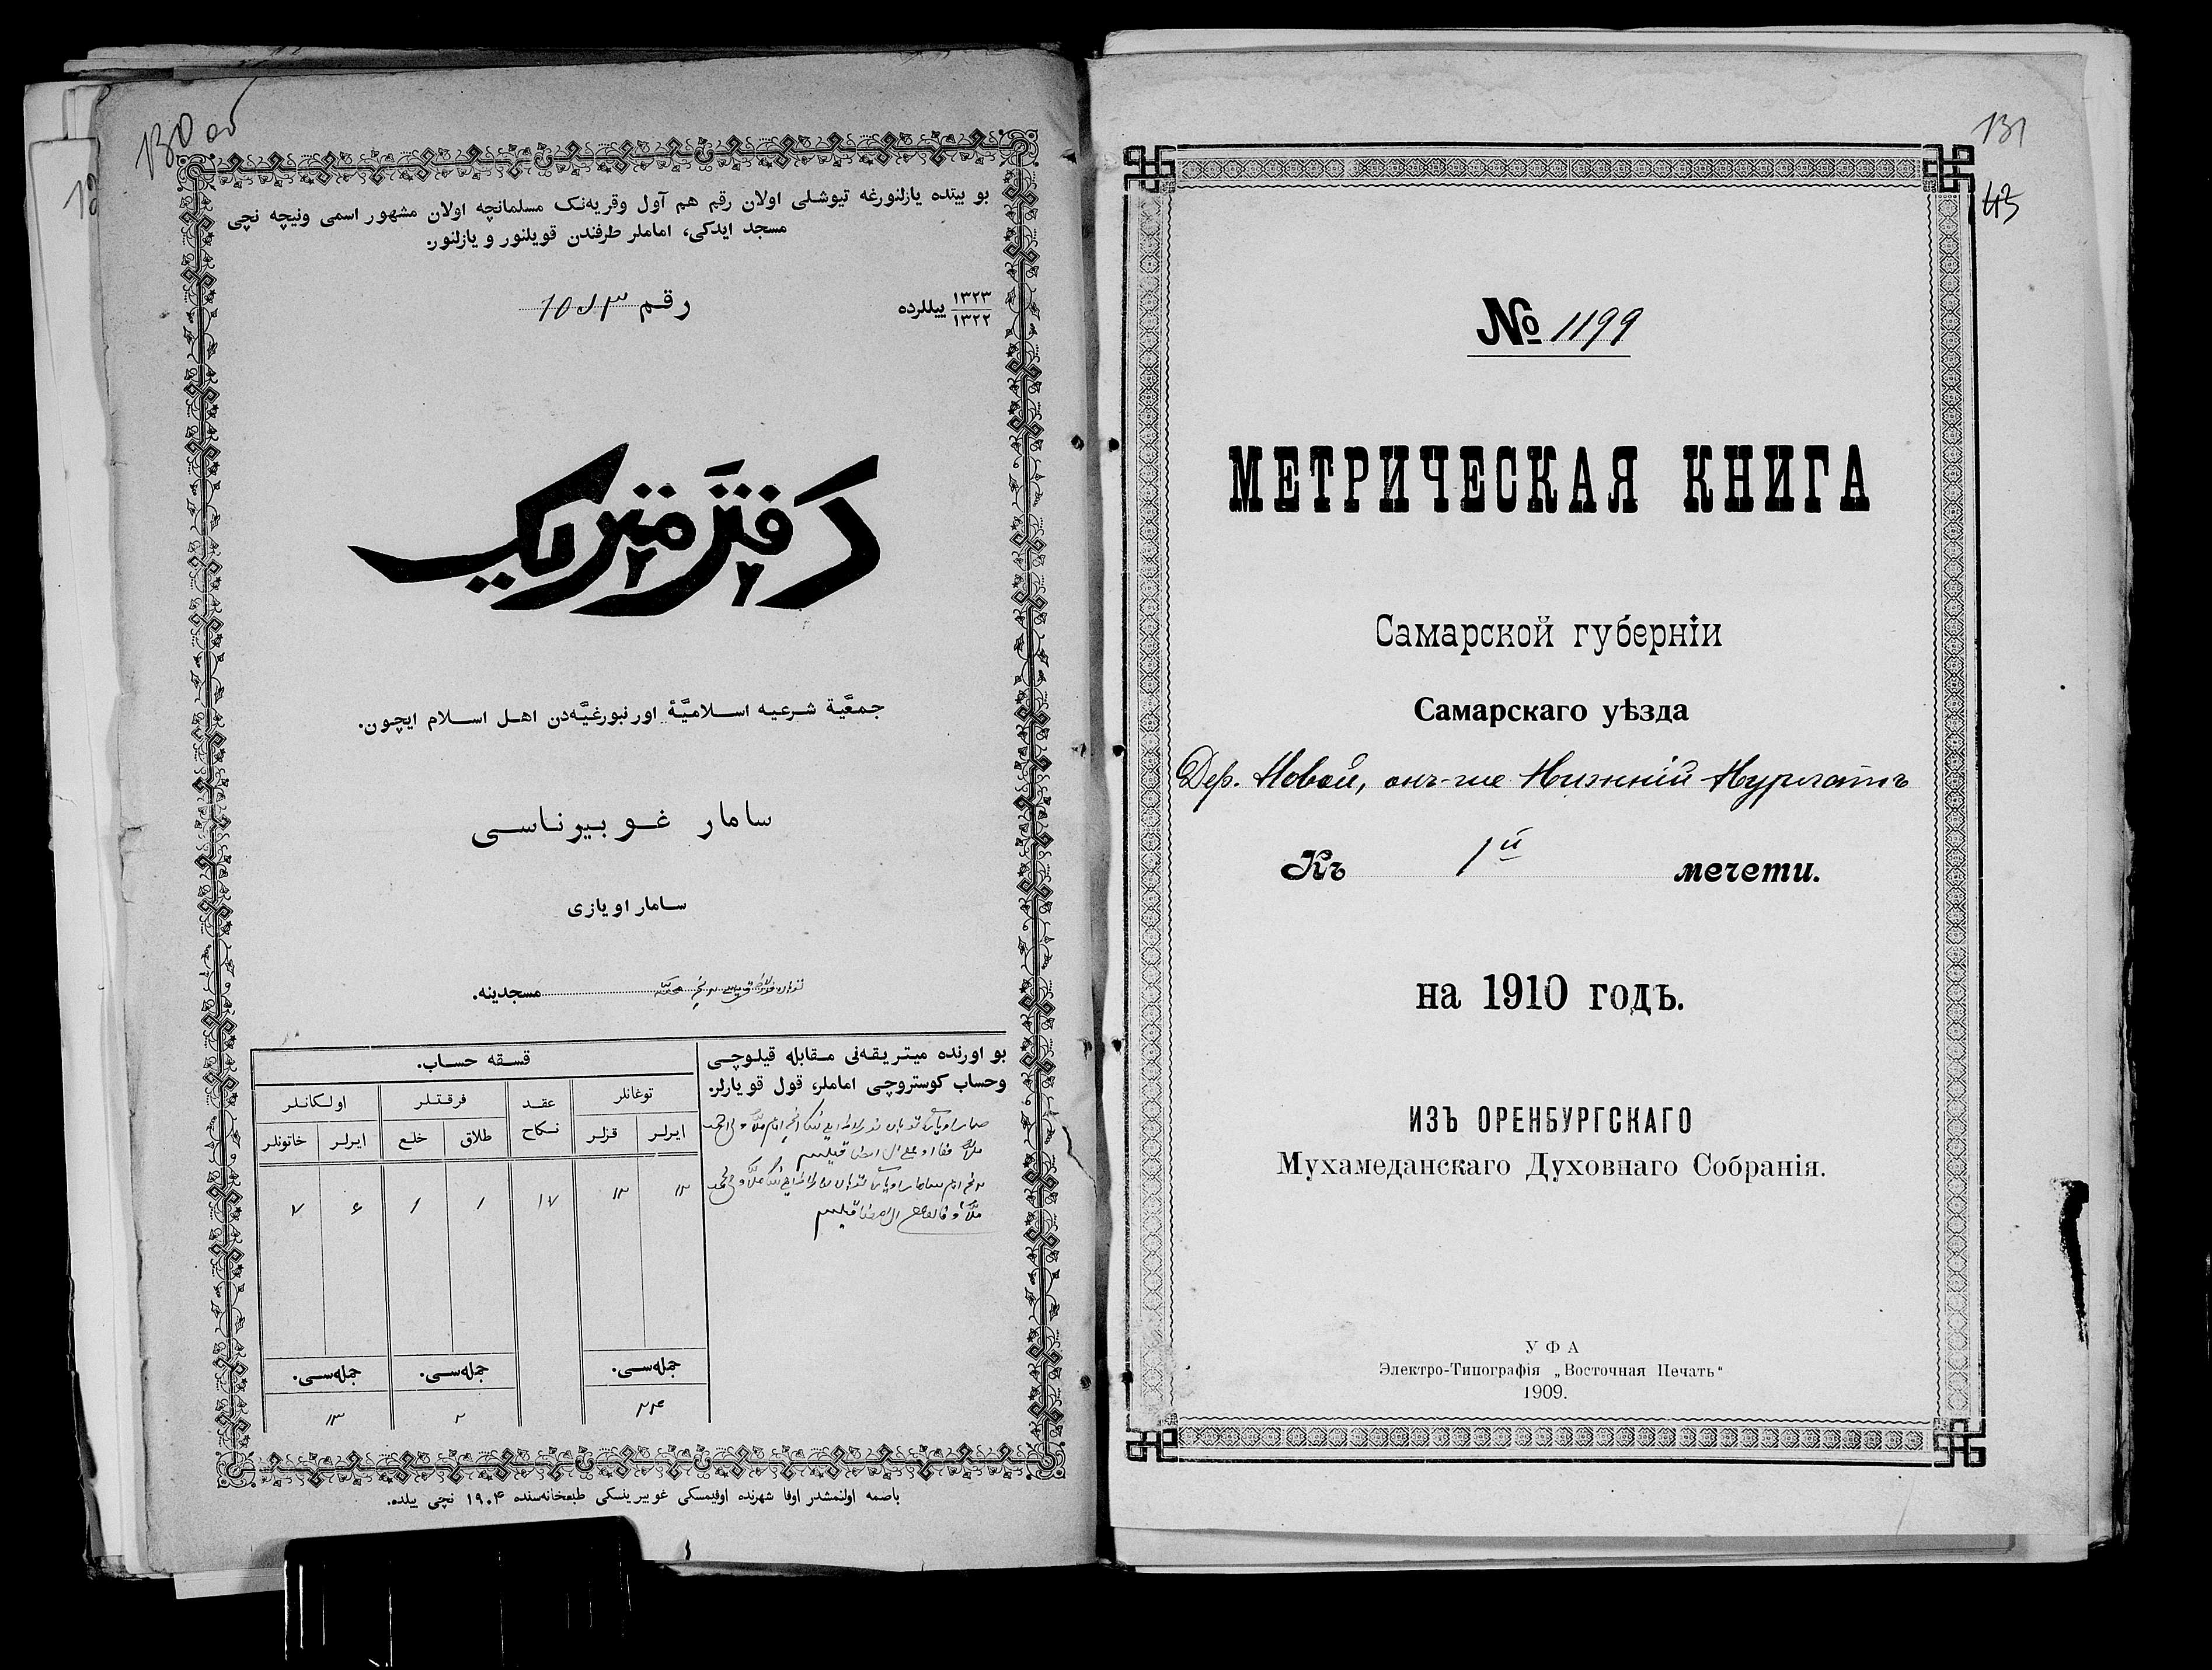 130 об
بو بیتده یازلنورغه تیوشلی اولان رقم هم آول وقریه‌نک مسلمانچه اولان مشهور اسمی ونیچه نچی
مسجد ایدکی، اماملر طرفندن قویلنور و یازلنور.
۱۳۲۳
۱۳۲۲
ییللرده
رقم
دفتر متریک
جمعیة شرعیه اسلامیّهٔ اورنبورغیّه‌دن اهل اسلام ایچون.
سامار غوبیرناسی
سامار اویازی
مسجدینه.
بو اورنده میتریقه‌نی مقابله قیلوچی
وحساب کوستروچی اماملر، قول قویارلر.
قسقه حساب.
توغانلر
عقد نکاح
فرقتلر
اولکانلر
ایرلر
قزلر
طلاق
خلع
ایرلر
خاتونلر
۱۳
۱۳
۱۷
۱
۱
۶
۷
جمله‌سی.
جمله‌سی.
جمله‌سی.
۲
۱۳
باصمه اولنمشدر اوفا شهرنده اوفیمسکی غوبیرینسکی طبعخانه‌سنده ۱۹۰۴ نچی ییلده.
131
43
№ 1199
МЕТРИЧЕСКАЯ КНИГА
Самарской губерніи
Самарскаго уѣзда
Дер. Новой, онъ-же Нижній Нурлатъ
Къ 1й мечети.
на 1910 годъ.
ИЗЪ ОРЕНБУРГСКАГО
Мухамеданскаго Духовнаго Собранія.
УФА
Электро-Типографія „Восточная Печать“
1909.